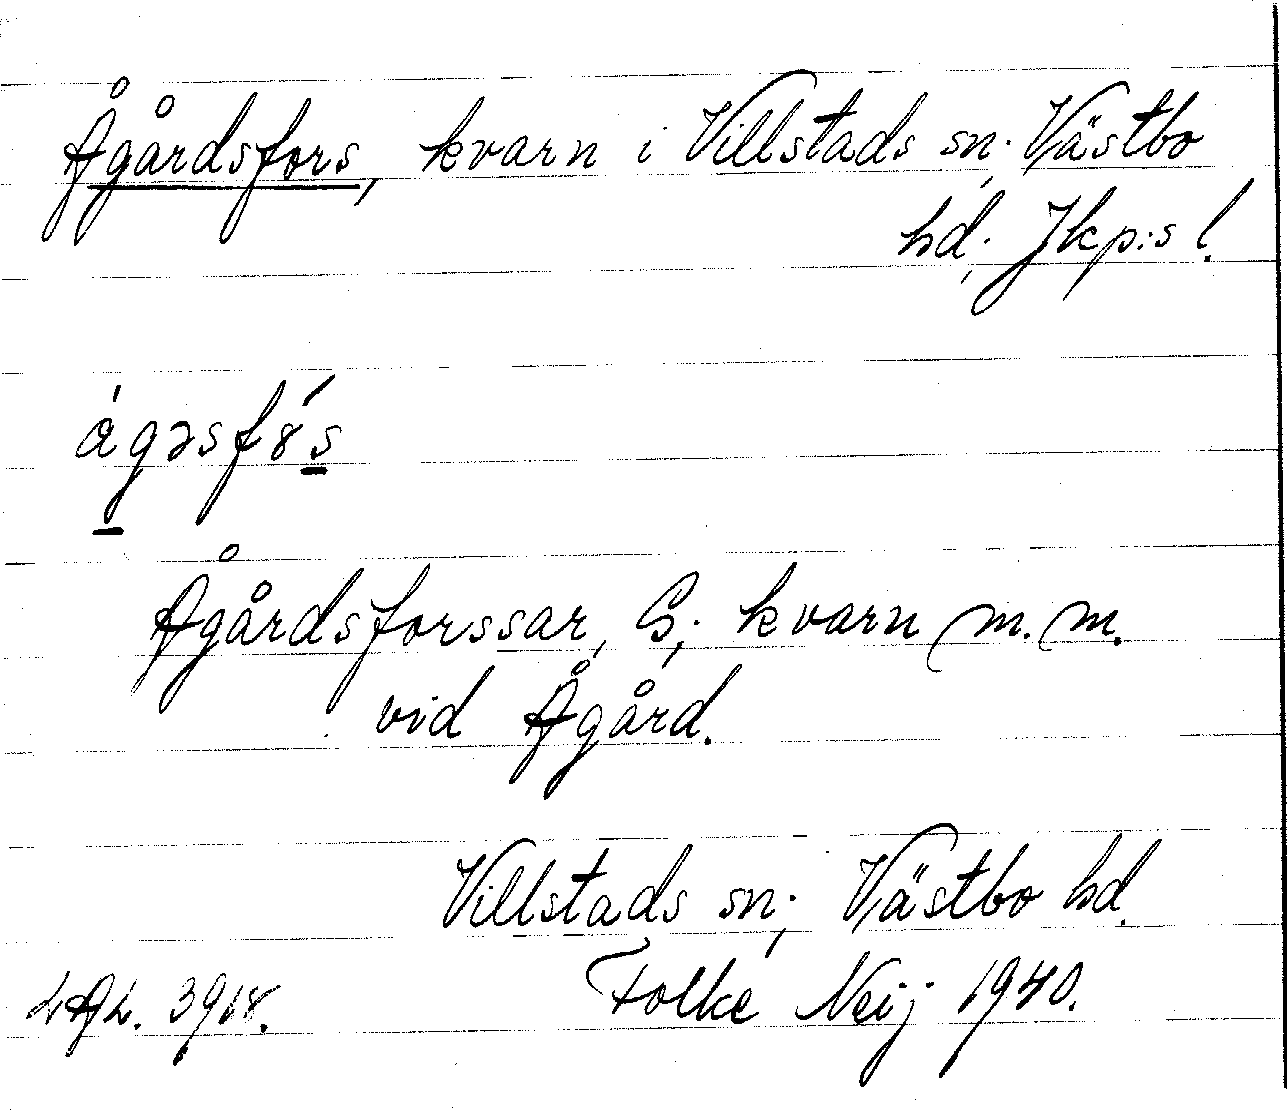 Ågårdsfors, kvarn i Villstads sn. Västbo
hd. Jkp:s l.
Ågårdsforssar, S; kvarn m.m.
vid Ågård.
Villstads sn; Västbo hd.
LAL. 3918.
Folke Neij 1940.